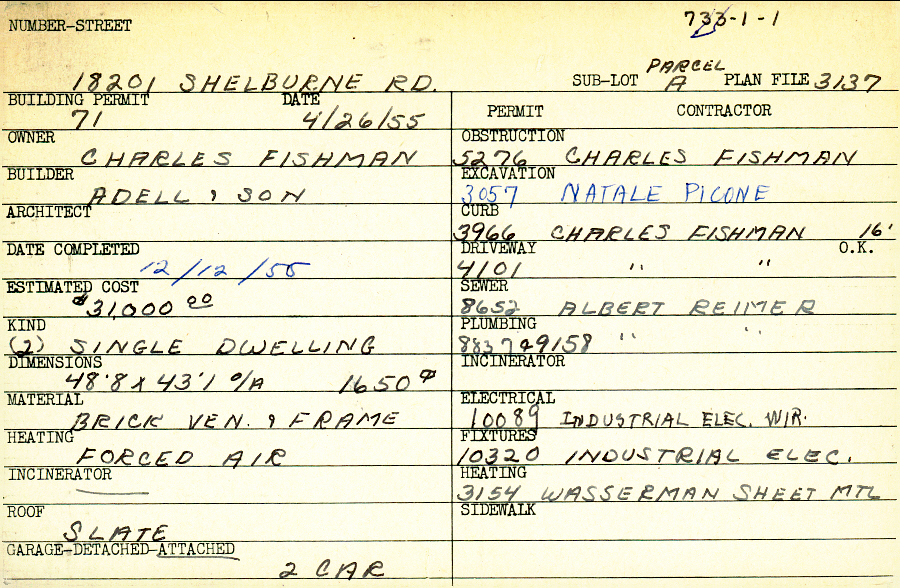 NUMBER-STREET
733-1-1
18201 SHELBURNE RD.
SUB-LOT PARCEL A PLAN FILE 3137
BUILDING PERMIT DATE
71 4/26/55
PERMIT CONTRACTOR
OWNER
CHARLES FISHMAN
OBSTRUCTION
5276 CHARLES FISHMAN
BUILDER
ADELL & SON
EXCAVATION
3057 NATALE PICONE
ARCHITECT
CURB
3966 CHARLES FISHMAN 16'
DATE COMPLETED
12/12/55
DRIVEWAY O.K.
4101 " "
ESTIMATED COST
$31,000 00
SEWER
8652 ALBERT REIMER
KIND
(2) SINGLE DWELLING
PLUMBING
8837 & 9158 " "
DIMENSIONS
48'8 X 43'1 O/A 1650
INCINERATOR
MATERIAL
BRICK VEN. & FRAME
ELECTRICAL
10089 INDUSTRIAL ELEC. WIR.
HEATING
FORCED AIR
FIXTURES
10320 INDUSTRIAL ELEC.
INCINERATOR
HEATING
3154 WASSERMAN SHEET MTL
ROOF
SLATE
SIDEWALK
GARAGE-DETACHED-ATTACHED
2 CAR